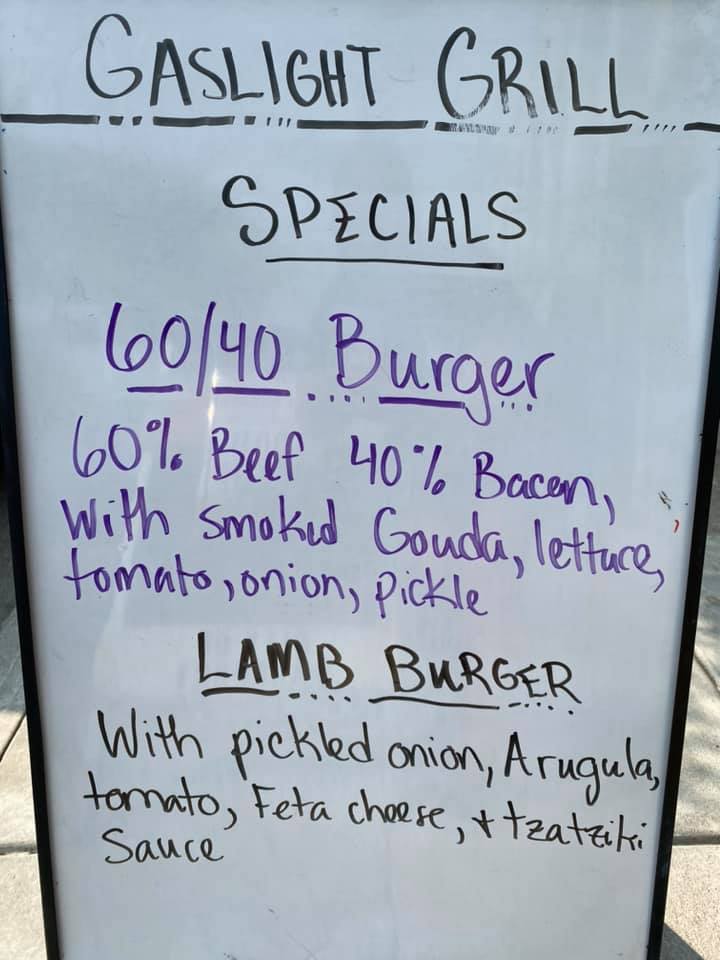 GASLIGHT GRILL
SPECIALS
60/40 Burger
60% Beef 40% Bacon,
With smoked Gouda, lettuce,
tomato, onion, pickle
LAMB BURGER
With pickled onion, Arugula,
tomato, Feta cheese, + tzatziki
Sauce